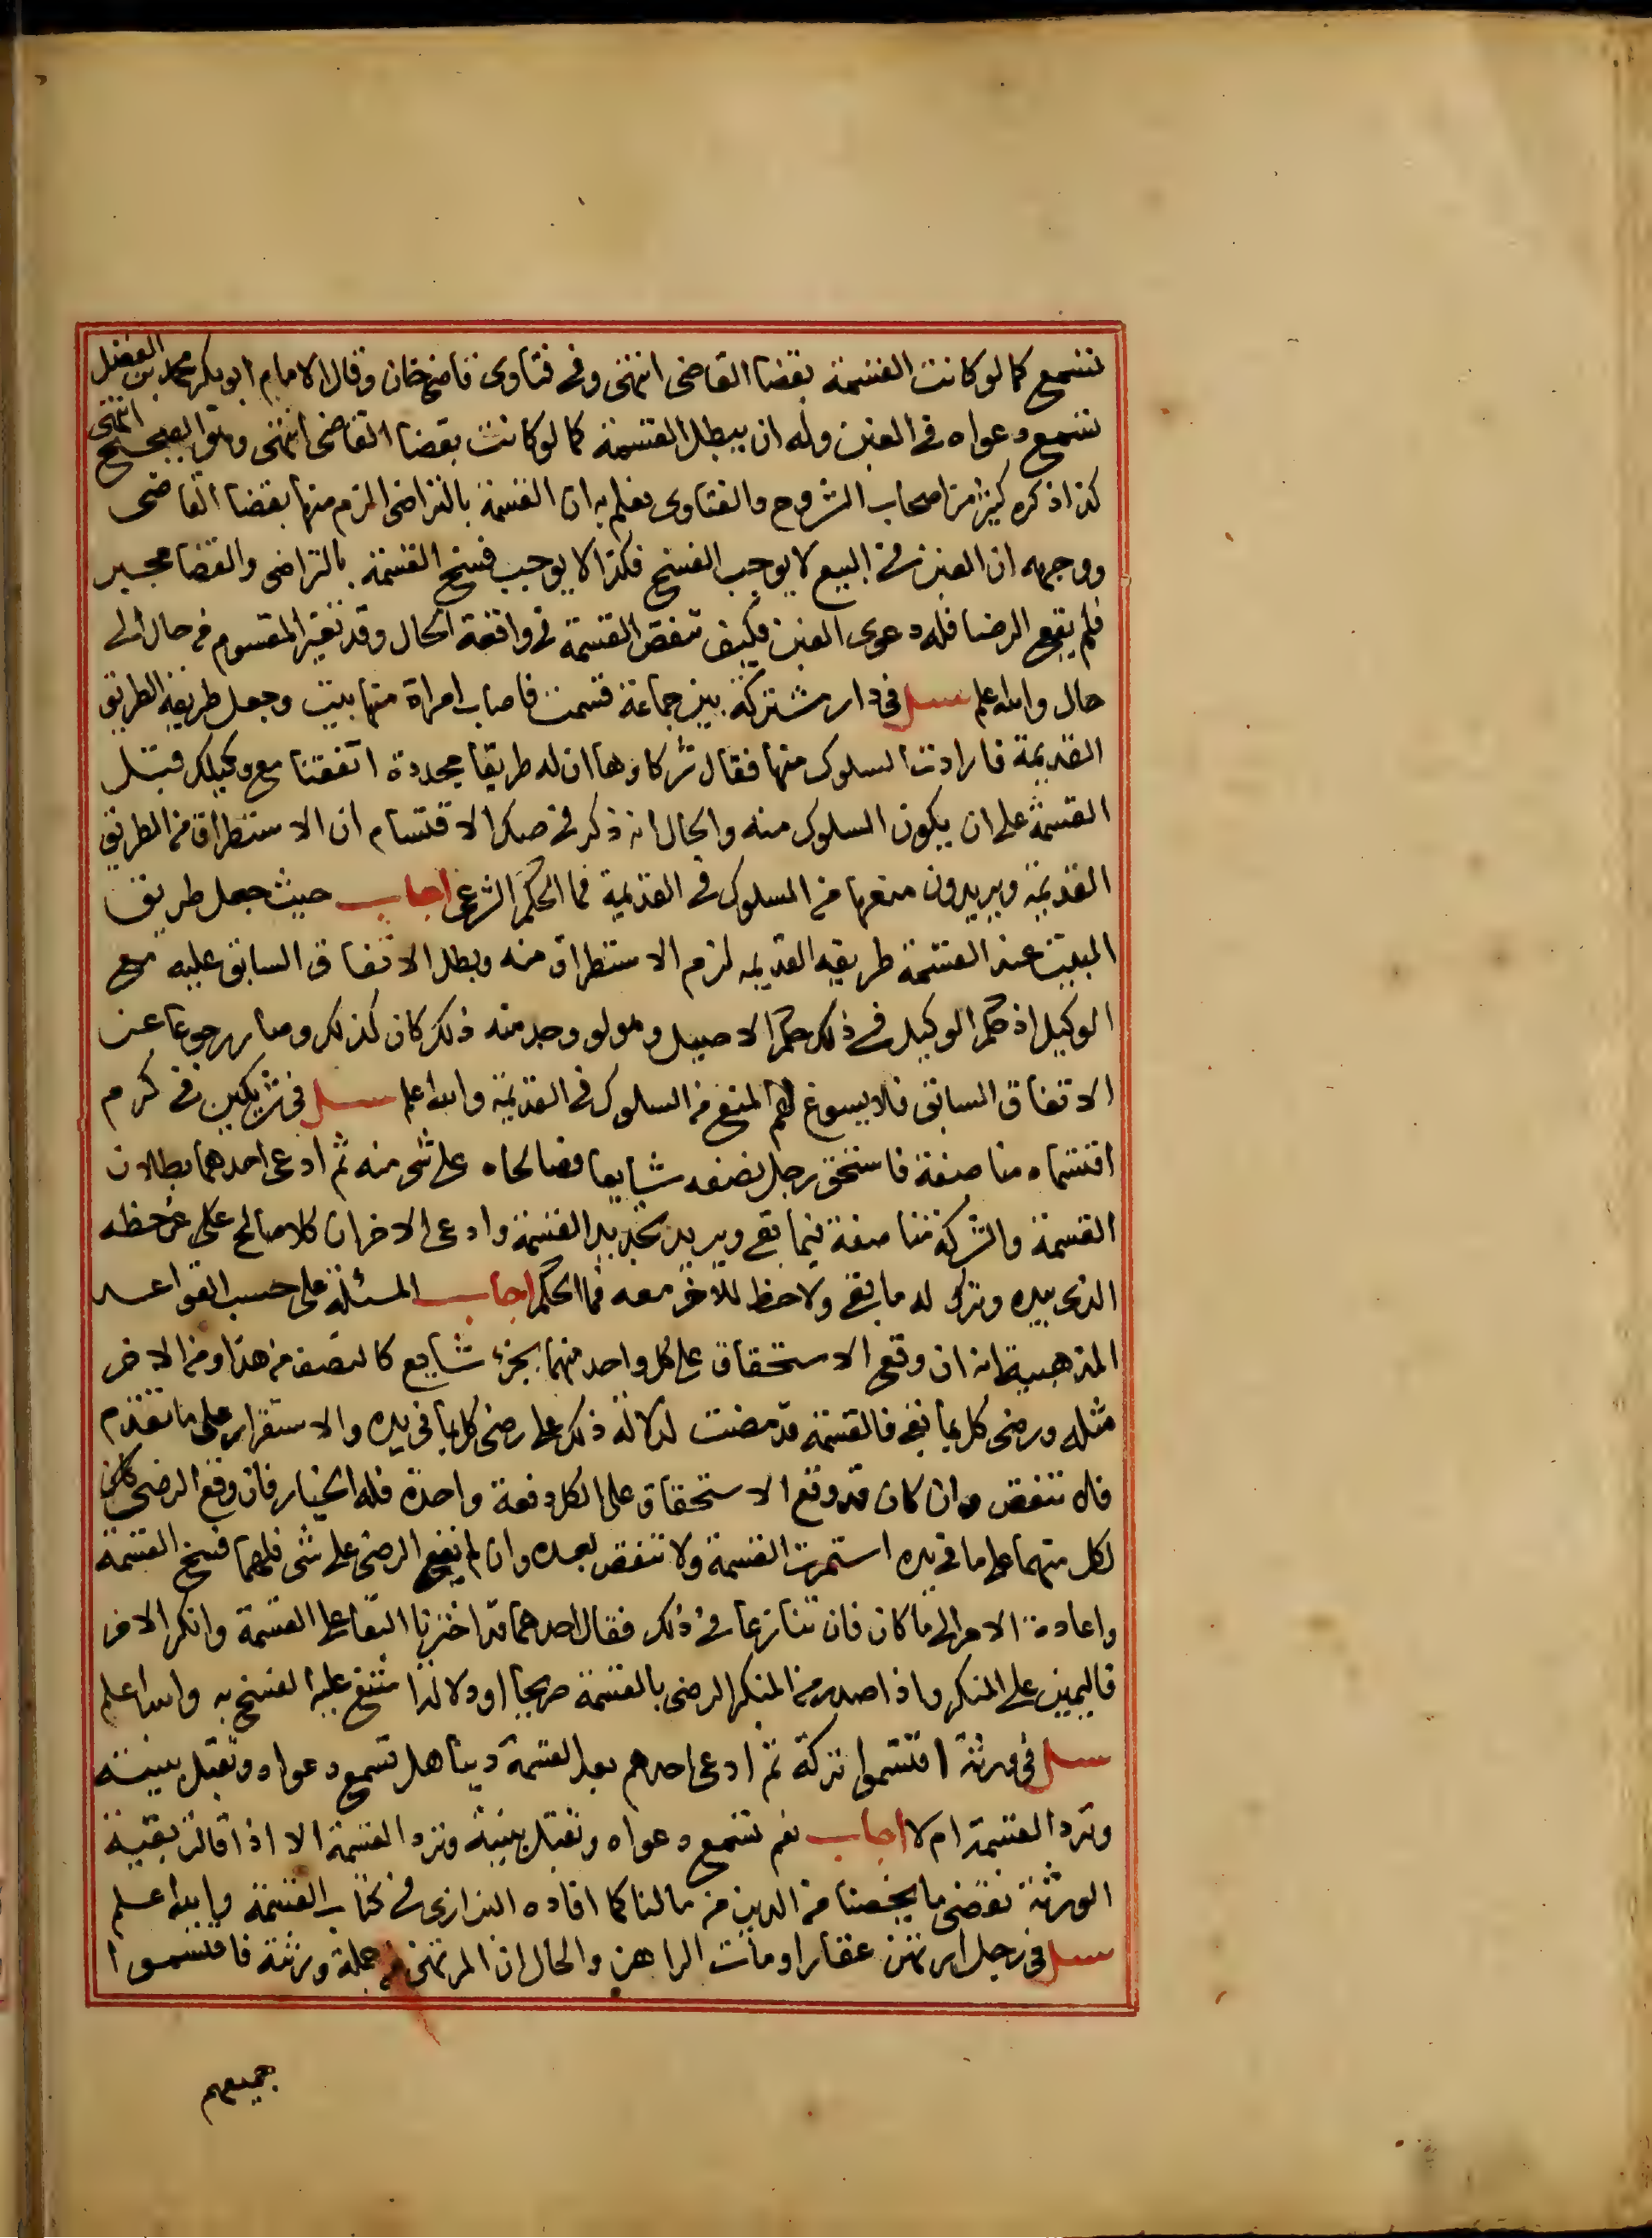 تسمع كما لو كانت القسمة بقضا القاضى انتهى وفى فتاوى قاضيخان وقال الامام ابو بكر محمد بن الفضل
تسمع دعواه فى الغبن وله ان يبطل القسمة كما لو كانت بقضا القاضى انتهى وهو الصحيح انتهى
كذا ذكره كثير من اصحاب الشروح والفتاوى فعلم به ان القسمة بالتراضى الزم منها بقضا القاضى
ووجهه ان الغبن فى البيع لا يوجب الفسخ فكذا لا يوجب فسخ القسمة بالتراضى والقضا مجبر
فلم يقع الرضا فله دعوى الغبن فكيف تنقض القسمة فى واقعة الحال وقد تغير المقسوم من حال الى
حال والله اعلم سئل فى دار مشتركة بين جماعة قسمت فاصاب امراة منها بيت وجعل طريقه الطريق
القديمة فارادت السلوك منها فقال شركاوها ان له طريقا مجددة اتفقنا مع وكيلك قبل
القسمة على ان يكون السلوك منه والحال انه ذكر فى صك الاقتسام ان الاستطراق من الطريق
القديمة ويريدون منعها من السلوك فى القديمة فما الحكم الشرعى اجاب حيث جعل طريق
البيت عند القسمة طريقه القديمه لزم الاستطراق منه وبطل الاتفاق السابق عليه مع
الوكيل اذ حكم الوكيل فى ذلك حكم الاصيل وهو لو وجد منه ذلك كان كذلك وصار رجوعا عن
الاتفاق السابق فلا يسوغ لهم المنع من السلوك فى القديمة والله اعلم سئل فى شريكين فى كرم
اقتسماه مناصفة فاستحق رجل نصفه شايعا فصالحاه على شى منه ثم ادعى احدهما بطلان
القسمة والشركة مناصفة فيما بقى ويريد تجديد القسمة وادعى الاخر ان كلا صالح على عن حظه
الذى بيده وترك له ما بقى ولا حظ للاخر معه فما الحكم اجاب المسئلة على حسب القواعد
المذهبية انه ان وقع الاستحقاق على كل واحد منهما بجزء شايع كالنصف من هذا ومن الاخر
مثله ورضى كل بما بقى فالقسمة قد مضت لدلالة ذلك على رضى كل بما فى يده والاستقرار على ما تقدم
فلا تنقض وان كان قد وقع الاستحقاق على الكل دفعة واحدة فله الخيار فان وقع الرضى كان
لكل منهما على ما فى يده استمرت القسمة ولا تنقض بعده وان لم يقع الرضى على شى فلهما فسخ القسمة
واعادة الامر الى ما كان فان تنازعا فى ذلك فقال احدهما قد اخترنا البقا على القسمة وانكر الاخر
فاليمين على المنكر واذا صدر من المنكر الرضى بالقسمة صريحا او دلالة امتنع عليه الفسخ به والله اعلم
سئل فى ورثة اقتسموا تركة ثم ادعى احدهم بعد القسمة دينا هل تسمع دعواه وتقبل بينته
وترد القسمة ام لا اجاب نعم تسمع دعواه وتقبل بينته وترد القسمة الا اذا قالت بقية
الورثة نقضى ما يخصنا من الدين من مالنا كما افاده البزازى فى كتاب القسمة والله اعلم
سئل فى رجل ارتهن عقارا ومات الراهن والحال ان المرتهن من جملة ورثته فاقتسموا
جميعهم